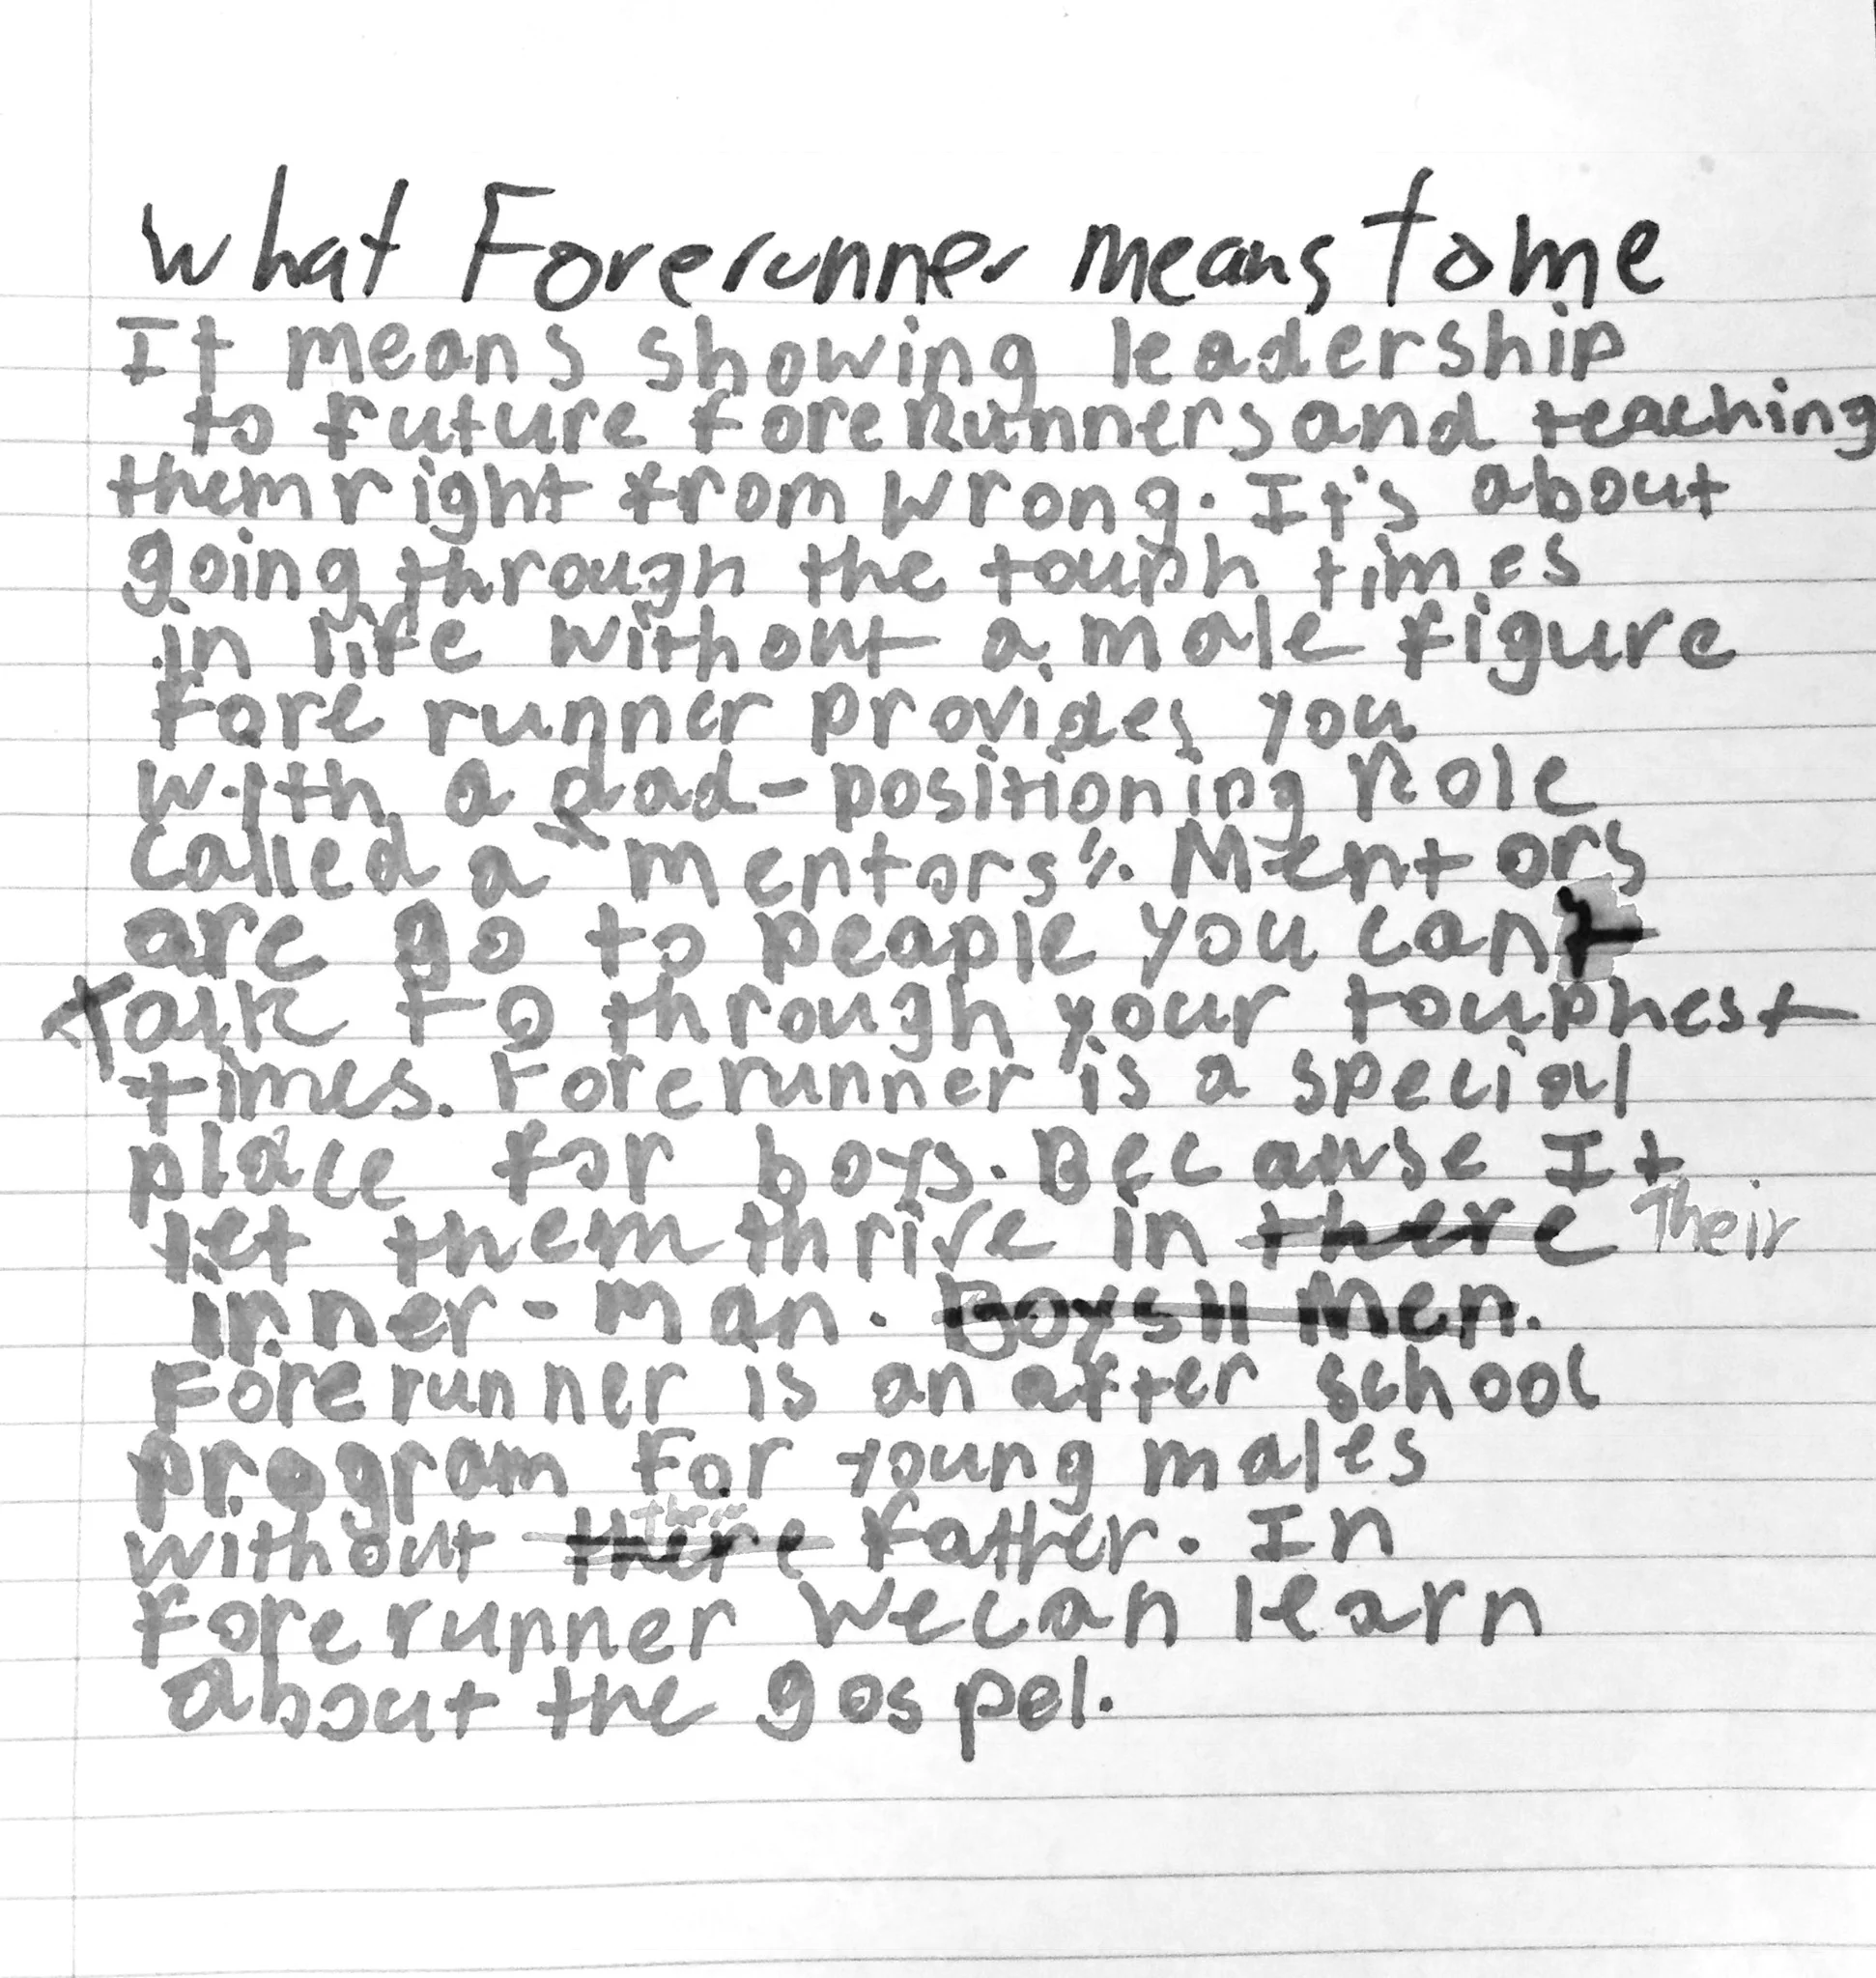 what Forerunner means to me
It means showing leadership
to future foreRunners and teaching
them right from wrong. It's about
going through the touph times
in life without a male figure
Fore runner provides you
with a dad-positioning Role
called a "mentors". Mentors
are go to peaple you can
Talk to through your touphest
times. Forerunner is a special
place for boys. Because It
let them thrive in there Their
inner-man. Boys II Men.
Forerunner is an after school
program For young males
without there father. In
Forerunner We can learn
about the gospel.